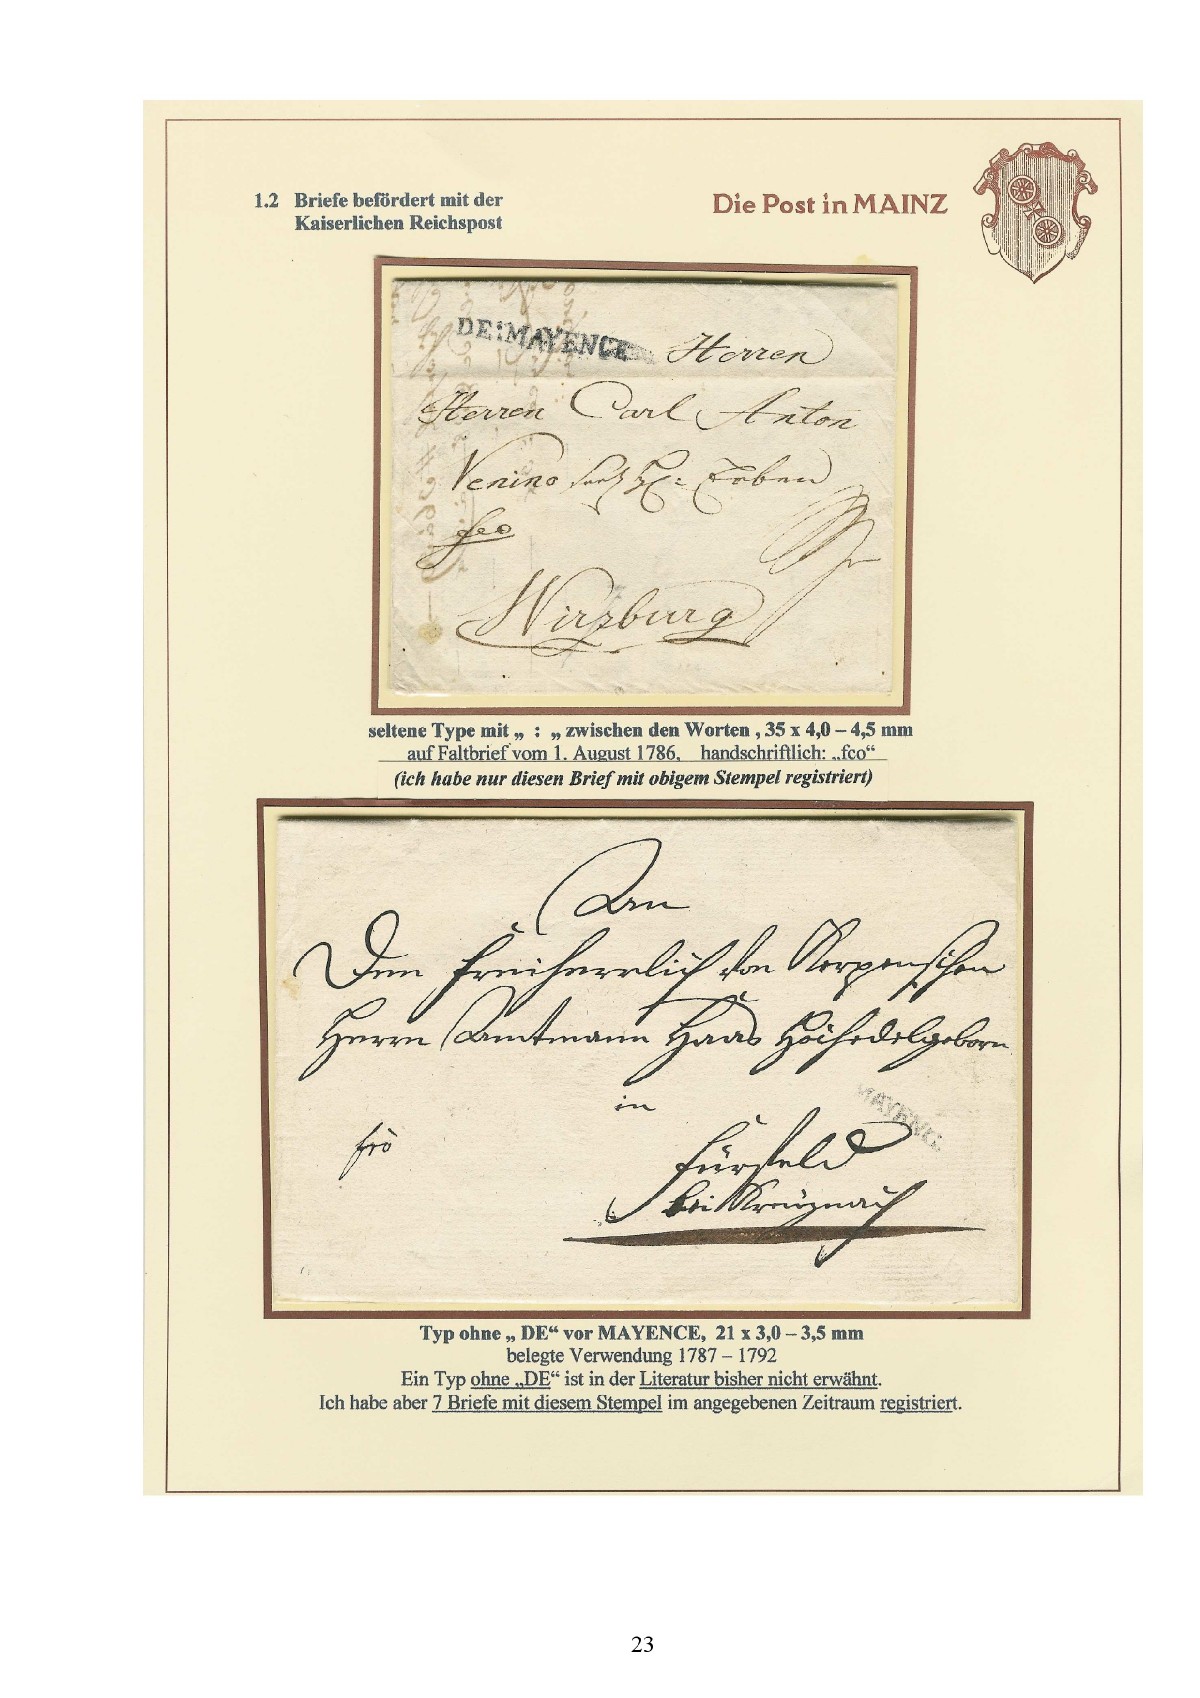 1.2 Briefe befördert mit der
Kaiserlichen Reichspost
Die Post in MAINZ
DE:MAYENCE Herren
Herren Carl Anton
Venino Erben
fco
Wirzburg
seltene Type mit „ : „ zwischen den Worten , 35 x 4,0 – 4,5 mm
auf Faltbrief vom 1. August 1786, handschriftlich: „fco“
(ich habe nur diesen Brief mit obigem Stempel registriert)
An
Dem Freiherrlich von Kerpenschen
Herrn Amtmann Haas Hochedelgeborn
in
MAYENC
frö
Fürfeld
bei Kreuznach
Typ ohne „ DE“ vor MAYENCE, 21 x 3,0 – 3,5 mm
belegte Verwendung 1787 – 1792
Ein Typ ohne „DE“ ist in der Literatur bisher nicht erwähnt.
Ich habe aber 7 Briefe mit diesem Stempel im angegebenen Zeitraum registriert.
23